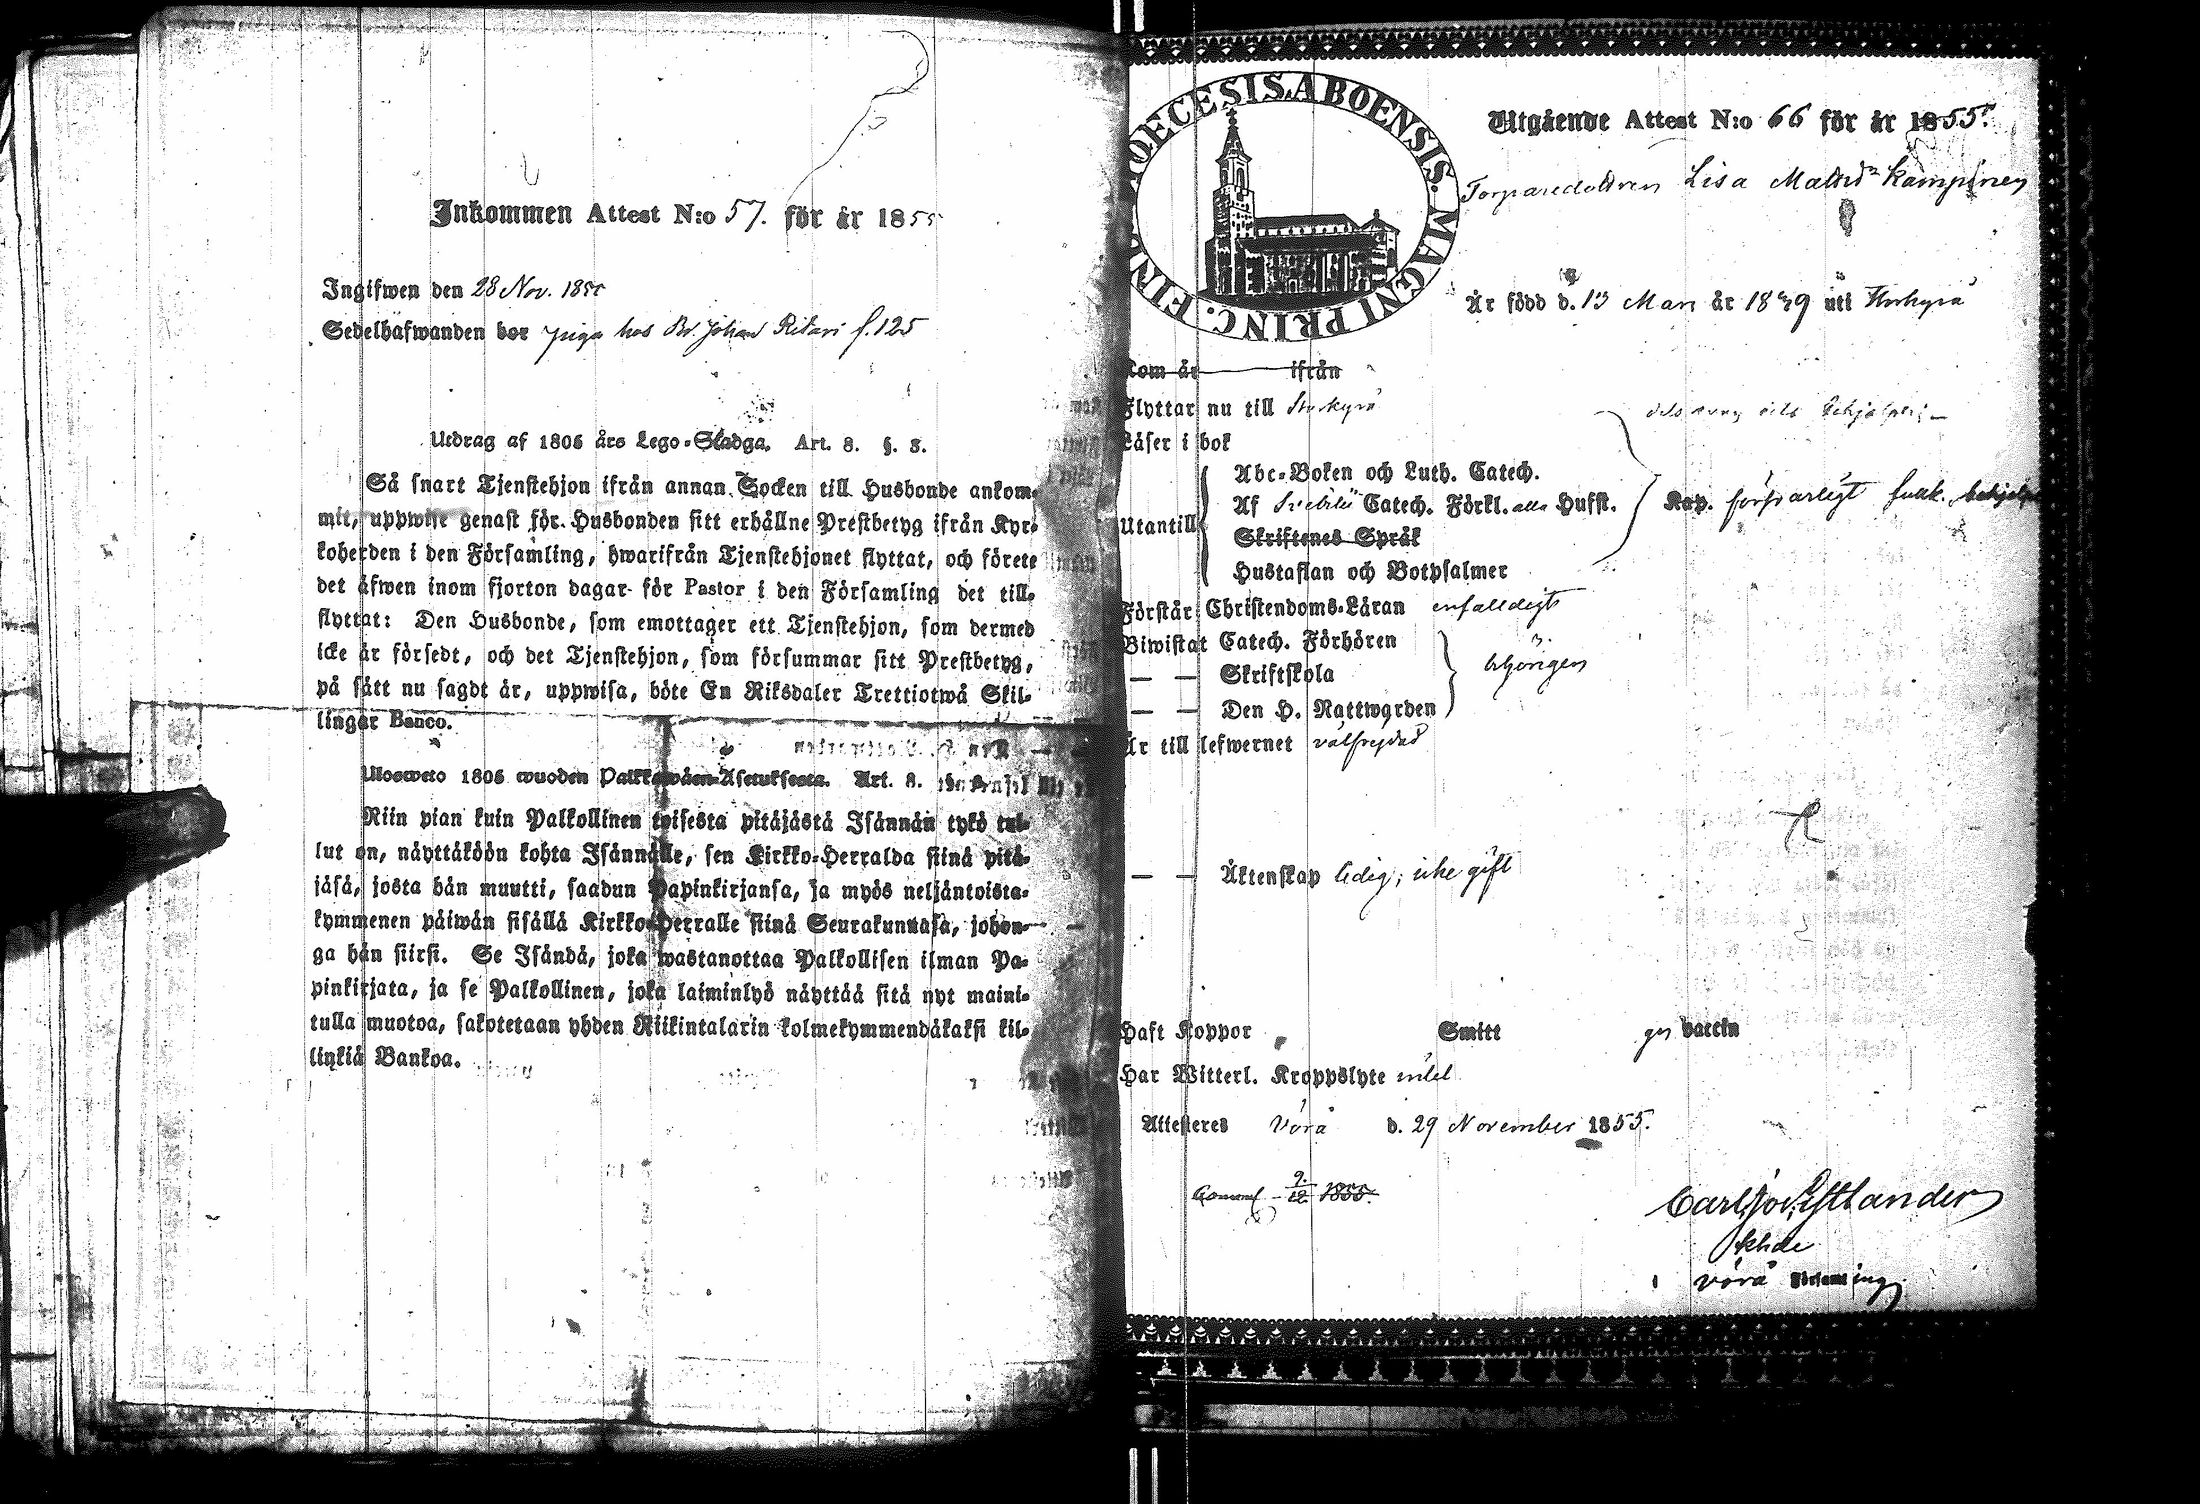 Inkommen Attest N:o 57. för år 1855
Ingifwen den 28 Nov. 1855
Sedelhafwanden bor piga hos Bd. Johan Ritari f. 125
Utdrag af 1806 års Lego-Stadga. Art. 8. §. 3.
Så snart Tjenstehjon ifrån annan Socken till Husbonde ankom-
mit, uppwise genast för Husbonden sitt erhållne Prestbetyg ifrån Kyr-
koherden i den Församling, hwarifrån Tjenstehjonet flyttat, och förete
det äfwen inom fjorton dagar för Pastor i den Församling det till-
flyttat: Den Husbonde, som emottager ett Tjenstehjon, som dermed
icke är försedt, och det Tjenstehjon, som försummar sitt Prestbetyg,
på sätt nu sagdt är, uppwisa, böte En Riksdaler Trettiotwå Skil-
lingar Banco.
Ulosweto 1806 wuoden Palkkawäen-Asetuksesta. Art. 8.
Niin pian kuin Palkollinen toisesta pitäjästä Isännän tykö tul-
lut on, näyttäköön kohta Isännälle, sen Kirkko-Herralda siinä pitä-
jäsä, josta hän muutti, saadun Papinkirjansa, ja myös neljäntoista-
kymmenen päiwän sisällä Kirkko-Herralle siinä Seurakunnasa, johon-
ga hän siirsi. Se Isändä, joka wastanottaa Palkollisen ilman Pa-
pinkirjata, ja se Palkollinen, joka laiminlyö näyttää sitä nyt maini-
tulla muotoa, sakotetaan yhden Riikintalarin kolmekymmendäkaksi kil-
linkiä Bankoa.
DIOECESIS ABOENSIS. MAGNI PRINC. FINL.
Utgående Attest N:o 66 för år 1855.
Torparedottren Lisa Matsdr Kampinen
Är född d. 13 Mars år 1839 uti Storkyro
Kom år ifrån
Flyttar nu till Storkyro
Läser i bok
Utantill
Abc-Boken och Luth. Catech.
Af Svebilii Catech. Förkl. alla Hufst.
Skriftenes Språk
Hustaflan och Botpsalmer
Kap. försvarligt
Förstår Christendoms-Läran enfaldigt
Biwistat Catech. Förhören
— — Skriftskola
— — Den H. Nattwarden
behörigen
Är till lefwernet välfrejdad
— — Äktenskap ledig, icke gift
Haft Koppor Smitt gn vaccin
Har Witterl. Kroppslyte intet
Attesteres Vörå d. 29 November 1855.
9/12 1855.
Carl Joh. Estlander
Khde
i Vörå Församling